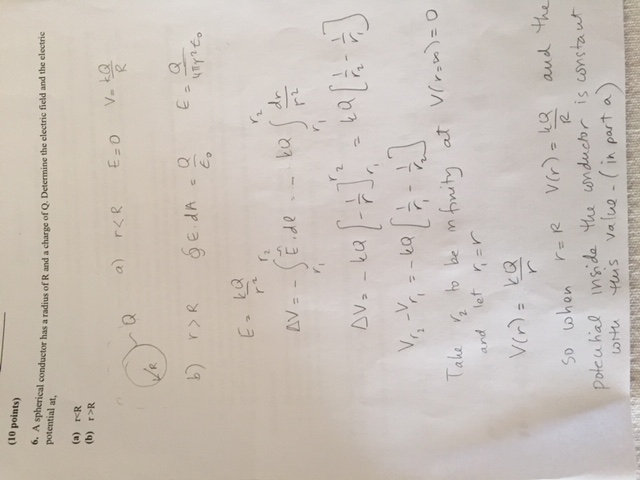 (10 points)
6. A spherical conductor has a radius of R and a charge of Q. Determine the electric field and the electric
potential at,
(a) r<R
(b) r>R
R
Q
a) r<R E=0 V= kQ/R
b) r>R ∮E.dA = Q/ε₀ E = Q/4πr²ε₀
E = kQ/r²
ΔV = - ∫_{r₁}^{r₂} E⃗.dl = - kQ ∫_{r₁}^{r₂} dr/r²
ΔV = - kQ [-1/r]_{r₁}^{r₂} = kQ [1/r₂ - 1/r₁]
V_{r₂} - V_{r₁} = - kQ [1/r₁ - 1/r₂]
Take r₂ to be infinity at V(r=∞) = 0
and let r₁ = r
V(r) = kQ/r
So when r = R V(r) = kQ/R and the
potential inside the conductor is constant
with this value - (in part a)